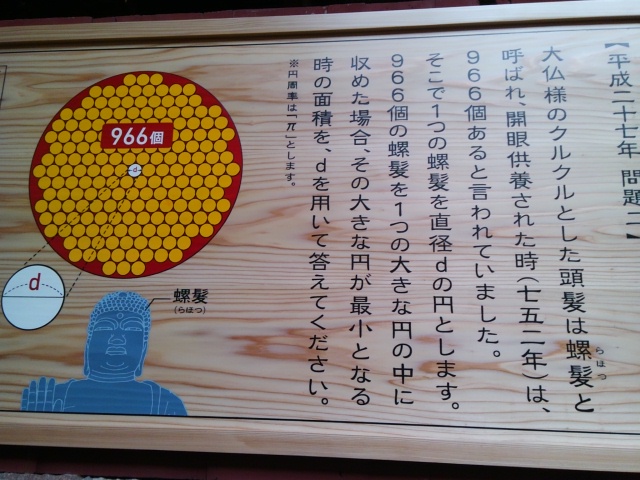 【平成二十七年 問題二】
大仏様のクルクルとした頭髪は螺髪と
らほつ
呼ばれ、開眼供養された時(七五二年)は、
966個あると言われていました。
そこで1つの螺髪を直径dの円とします。
966個の螺髪を1つの大きな円の中に
収めた場合、その大きな円が最小となる
時の面積を、dを用いて答えてください。
※円周率は「π」とします。
966個
d
d
螺髪
(らほつ)